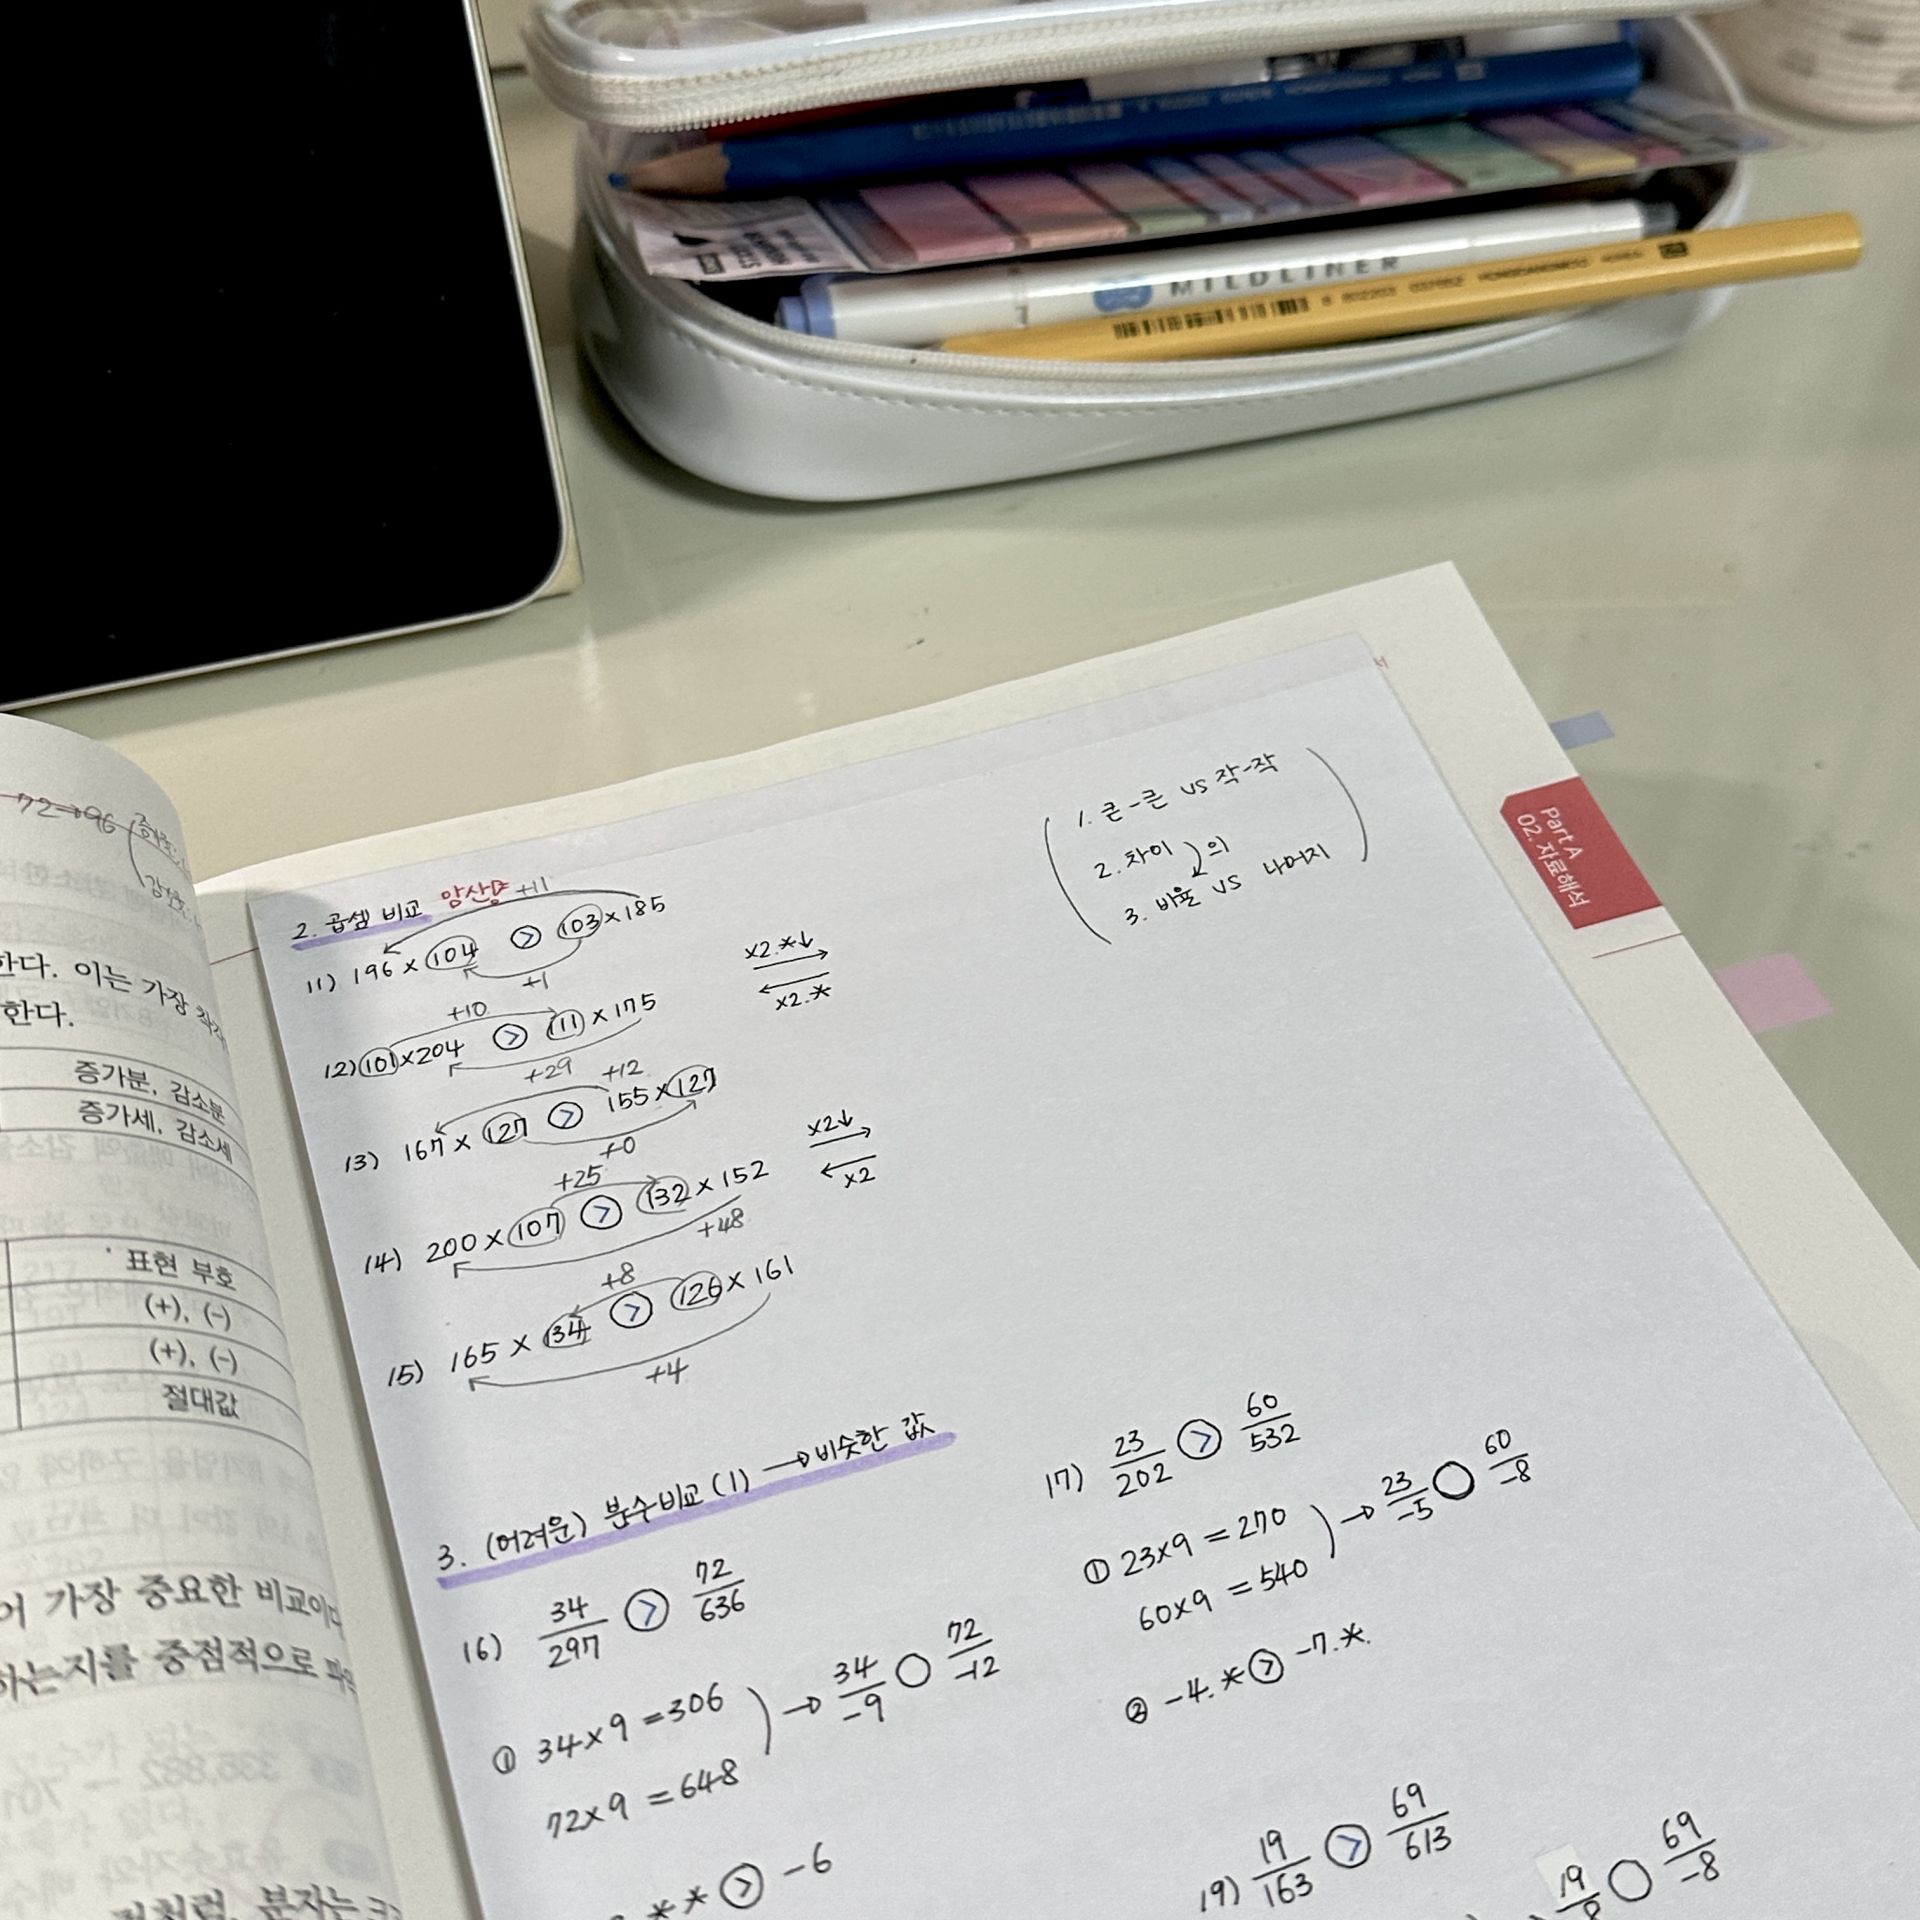 MILDLINER
72→96
한다. 이는 가장
한다.
증가분, 감소분
증가세, 감소세
표현 부호
(+), (-)
(+), (-)
절대값
어 가장 중요한 비교이다
하는지를 중점적으로
분자는
Part A
02. 자료해석
1. 큰-큰 VS 작-작
2. 차이
의
3. 비율 VS 나머지
2. 곱셈 비교 암산용
+11
11) 196 × 104 > 103 × 185
+1
×2.*↓
→
←
×2.*
+10
12) 101 × 204 > 111 × 175
+29
+12
13) 167 × 127 > 155 × 127
+0
×2↓
→
←
×2
+25
14) 200 × 107 > 132 × 152
+48
+8
15) 165 × 134 > 126 × 161
+4
3. (어려운) 분수비교 (1) → 비슷한 값
16) 34/297 > 72/636
① 34×9 = 306
72×9 = 648
→ 34/-9 ○ 72/-12
** > -6
17) 23/202 > 60/532
① 23×9 = 270
60×9 = 540
→ 23/-5 ○ 60/-8
② -4.* > -7.*
19) 19/163 > 69/613
19/-8 ○ 69/-8